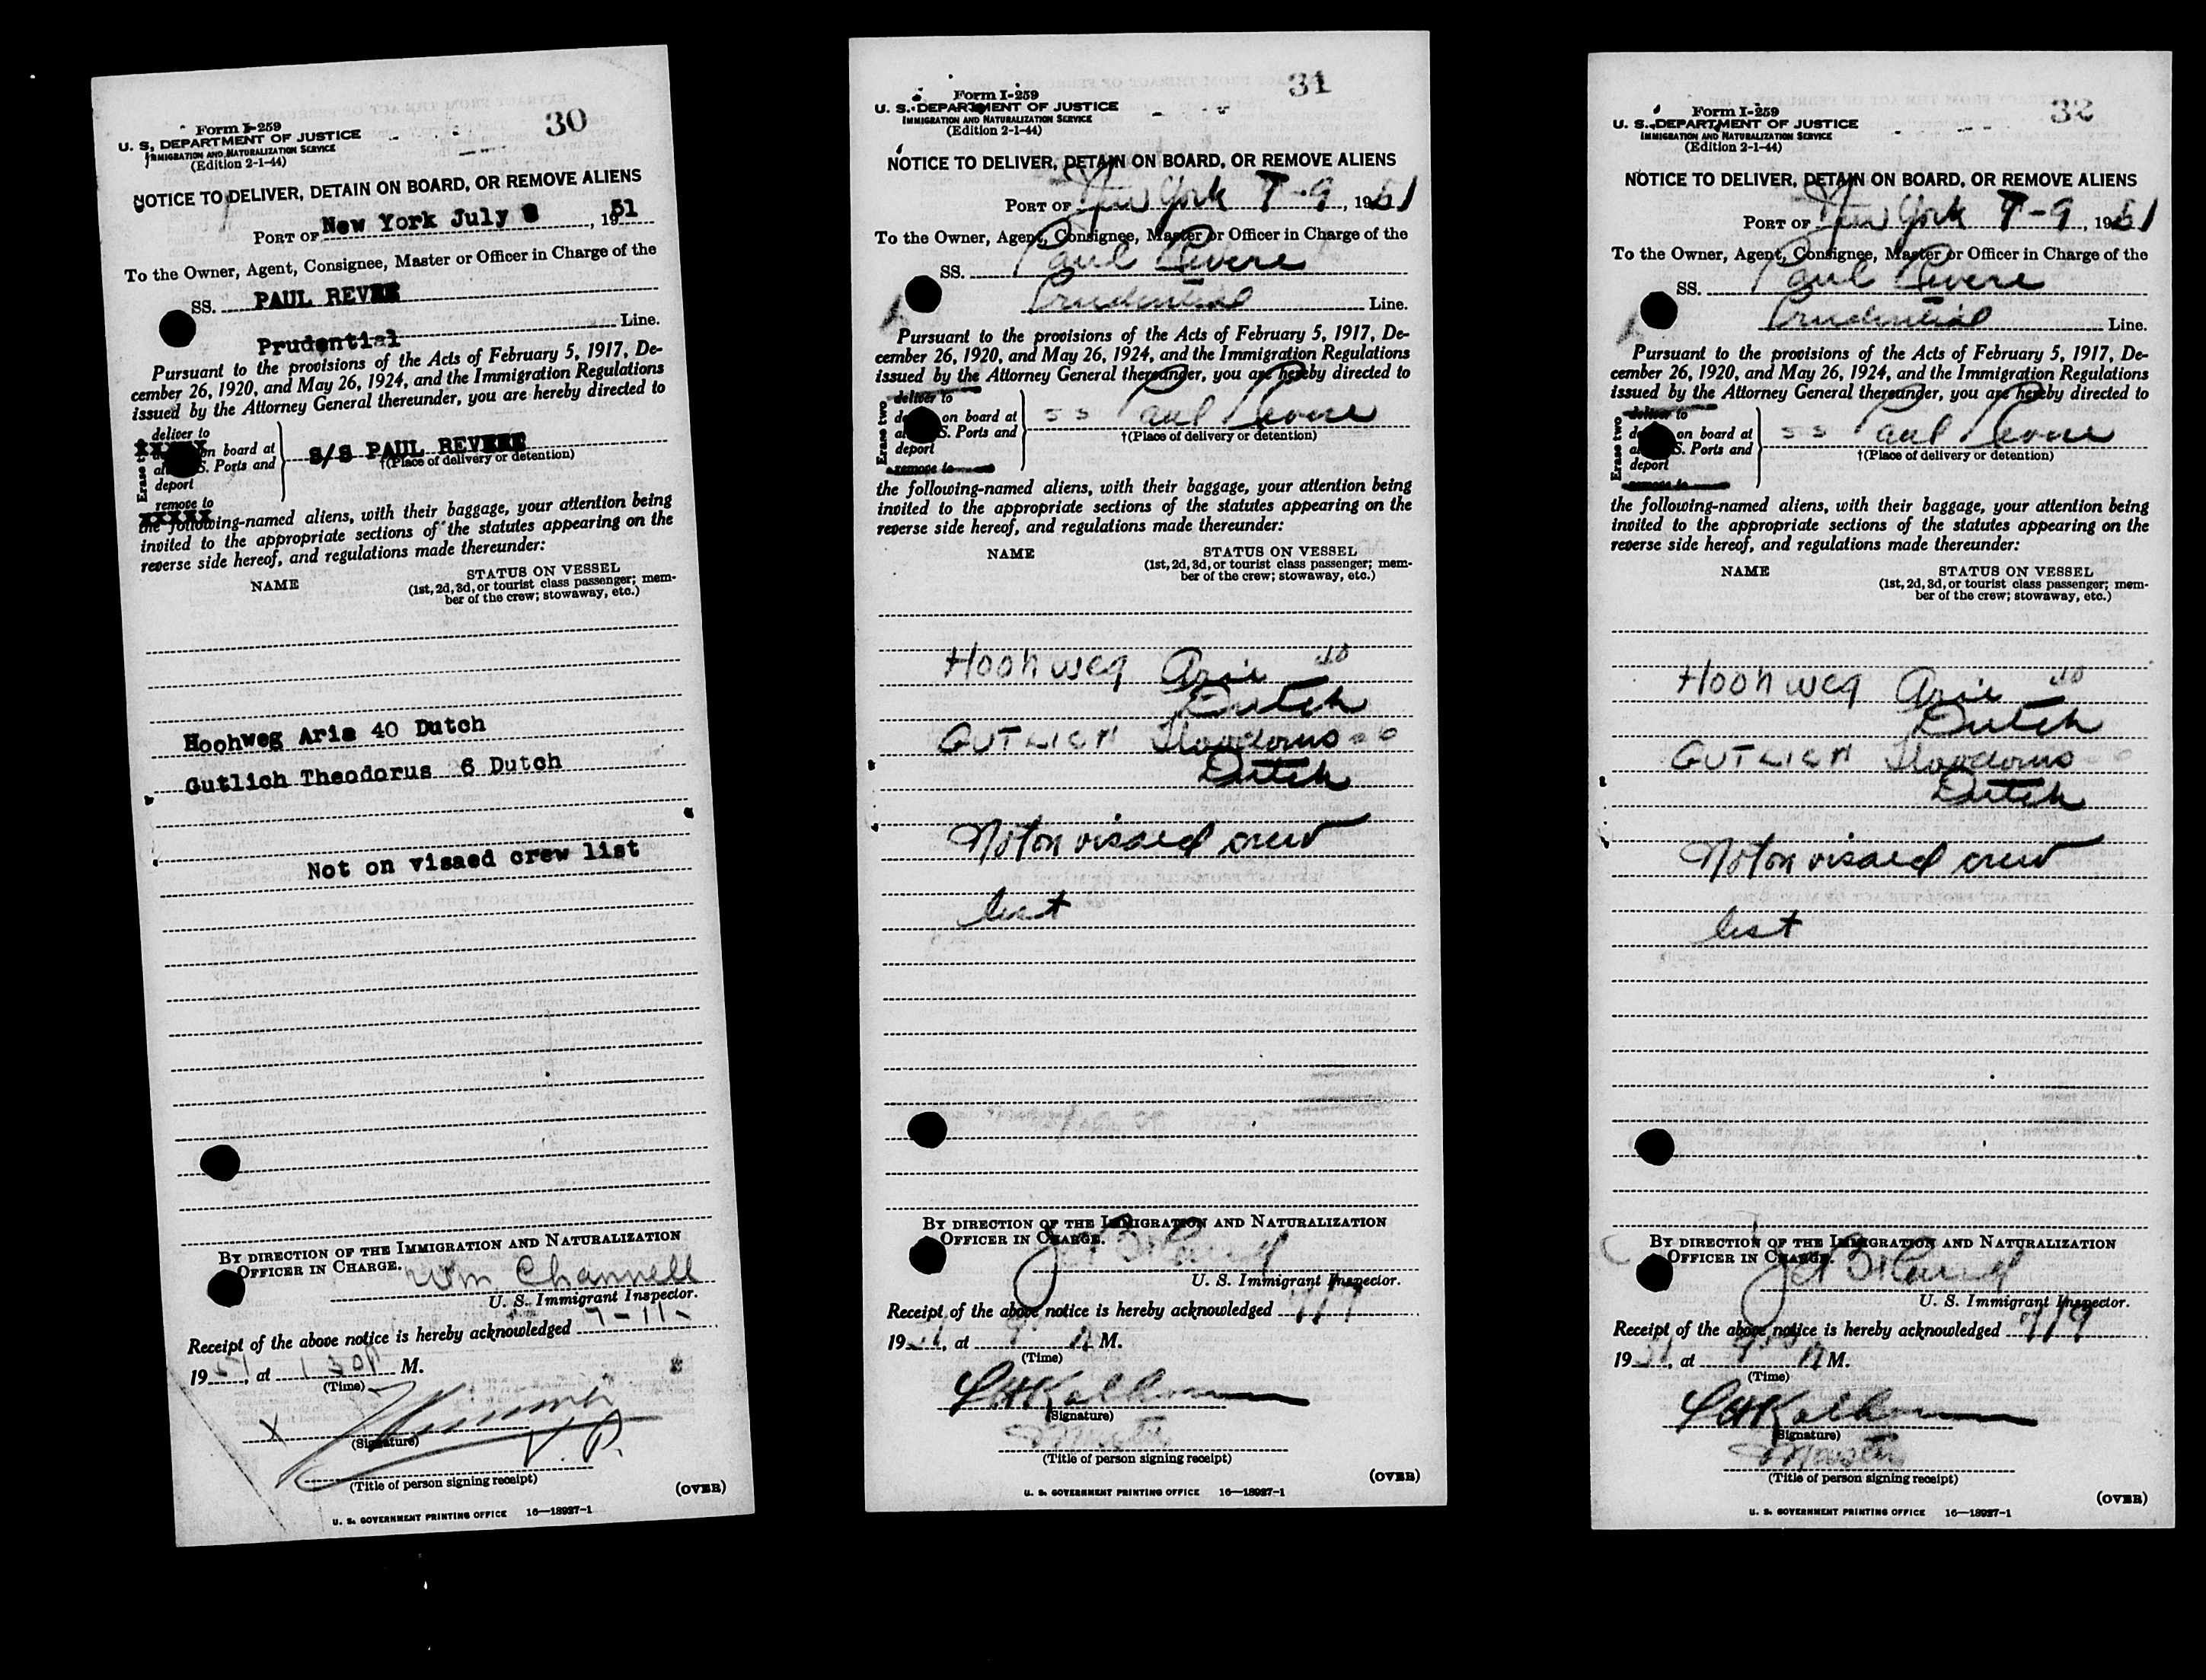 30
Form I-259
U. S. DEPARTMENT OF JUSTICE
IMMIGRATION AND NATURALIZATION SERVICE
(Edition 2-1-44)
NOTICE TO DELIVER, DETAIN ON BOARD, OR REMOVE ALIENS
PORT OF New York July , 1951
To the Owner, Agent, Consignee, Master or Officer in Charge of the
SS. PAUL REVERE
Prudential Line.
Pursuant to the provisions of the Acts of February 5, 1917, De-
cember 26, 1920, and May 26, 1924, and the Immigration Regulations
issued by the Attorney General thereunder, you are hereby directed to
Erase two
deliver to
on board at
S. Ports and
deport
remove to
S/S PAUL REVERE
†(Place of delivery or detention)
the following-named aliens, with their baggage, your attention being
invited to the appropriate sections of the statutes appearing on the
reverse side hereof, and regulations made thereunder:
NAME STATUS ON VESSEL
(1st, 2d, 3d, or tourist class passenger; mem-
ber of the crew; stowaway, etc.)
Hoohweg Arie 40 Dutch
Gutlich Theodorus 6 Dutch
Not on visaed crew list
BY DIRECTION OF THE IMMIGRATION AND NATURALIZATION
OFFICER IN CHARGE.
Wm Channell
U. S. Immigrant Inspector.
Receipt of the above notice is hereby acknowledged 7-11-
1951, at 130P M.
(Time)
X
(Signature)
V.P.
(Title of person signing receipt)
(OVER)
U. S. GOVERNMENT PRINTING OFFICE 16—18927-1
31
Form I-259
U. S. DEPARTMENT OF JUSTICE
IMMIGRATION AND NATURALIZATION SERVICE
(Edition 2-1-44)
NOTICE TO DELIVER, DETAIN ON BOARD, OR REMOVE ALIENS
PORT OF New York 7-9, 1951
To the Owner, Agent, Consignee, Master or Officer in Charge of the
SS. Paul Revere
Prudential Line.
Pursuant to the provisions of the Acts of February 5, 1917, De-
cember 26, 1920, and May 26, 1924, and the Immigration Regulations
issued by the Attorney General thereunder, you are hereby directed to
Erase two
deliver to
on board at
S. Ports and
deport
remove to
SS Paul Revere
†(Place of delivery or detention)
the following-named aliens, with their baggage, your attention being
invited to the appropriate sections of the statutes appearing on the
reverse side hereof, and regulations made thereunder:
NAME STATUS ON VESSEL
(1st, 2d, 3d, or tourist class passenger; mem-
ber of the crew; stowaway, etc.)
Hoohweg Arie 40
Dutch
GUTLICH Theodorus 6
Dutch
Not on visaed crew
list
BY DIRECTION OF THE IMMIGRATION AND NATURALIZATION
OFFICER IN CHARGE.
U. S. Immigrant Inspector.
Receipt of the above notice is hereby acknowledged 7/9
1951, at 9 A M.
(Time)
(Signature)
Master
(Title of person signing receipt)
(OVER)
U. S. GOVERNMENT PRINTING OFFICE 16—18927-1
32
Form I-259
U. S. DEPARTMENT OF JUSTICE
IMMIGRATION AND NATURALIZATION SERVICE
(Edition 2-1-44)
NOTICE TO DELIVER, DETAIN ON BOARD, OR REMOVE ALIENS
PORT OF New York 7-9, 1951
To the Owner, Agent, Consignee, Master or Officer in Charge of the
SS. Paul Revere
Prudential Line.
Pursuant to the provisions of the Acts of February 5, 1917, De-
cember 26, 1920, and May 26, 1924, and the Immigration Regulations
issued by the Attorney General thereunder, you are hereby directed to
Erase two
deliver to
on board at
S. Ports and
deport
remove to
SS Paul Revere
†(Place of delivery or detention)
the following-named aliens, with their baggage, your attention being
invited to the appropriate sections of the statutes appearing on the
reverse side hereof, and regulations made thereunder:
NAME STATUS ON VESSEL
(1st, 2d, 3d, or tourist class passenger; mem-
ber of the crew; stowaway, etc.)
Hoohweg Arie 40
Dutch
GUTLICH Theodorus 6
Dutch
Not on visaed crew
list
BY DIRECTION OF THE IMMIGRATION AND NATURALIZATION
OFFICER IN CHARGE.
U. S. Immigrant Inspector.
Receipt of the above notice is hereby acknowledged 7/9
1951, at 9 A M.
(Time)
(Signature)
Master
(Title of person signing receipt)
(OVER)
U. S. GOVERNMENT PRINTING OFFICE 16—18927-1